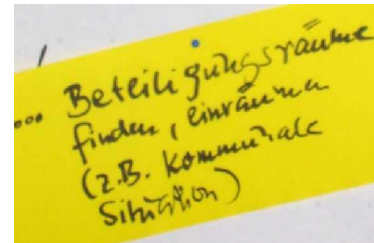 ... Beteiligungsräume
finden, einräumen
(z.B. kommunale
Situation)